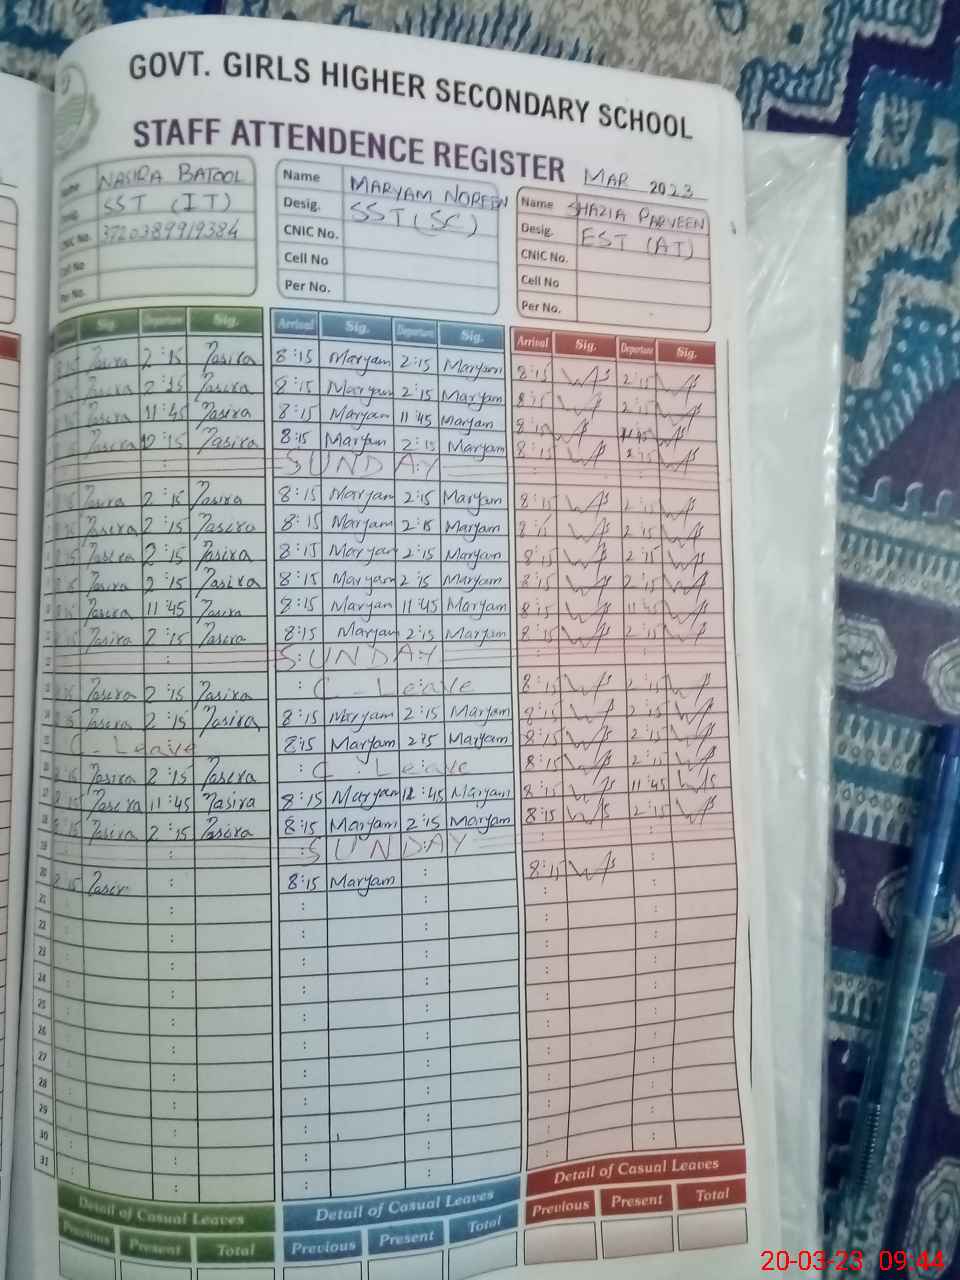 GOVT. GIRLS HIGHER SECONDARY SCHOOL
STAFF ATTENDENCE REGISTER MAR 2023
Name NASIRA BATOOL
Desig. SST (IT)
CNIC No. 3720389919384
Cell No
Per No.
Name MARYAM NOREEN
Desig. SST (SC)
CNIC No.
Cell No
Per No.
Name SHAZIA PARVEEN
Desig. EST (AT)
CNIC No.
Cell No
Per No.
Sig. Departure Sig. Arrival Sig. Departure Sig. Arrival Sig. Departure Sig.
Nasira 2:15 Nasira 8:15 Maryam 2:15 Maryam 8:15 2:15
Nasira 2:15 Nasira 8:15 Maryam 2:15 Maryam 8:15 2:15
Nasira 11:45 Nasira 8:15 Maryam 11:45 Maryam 8:15 11:45
Nasira 2:15 Nasira 8:15 Maryam 2:15 Maryam 8:15 2:15
SUNDAY
Nasira 2:15 Nasira 8:15 Maryam 2:15 Maryam 8:15 2:15
Nasira 2:15 Nasira 8:15 Maryam 2:15 Maryam 8:15 2:15
Nasira 2:15 Nasira 8:15 Maryam 2:15 Maryam 8:15 2:15
Nasira 2:15 Nasira 8:15 Maryam 2:15 Maryam 8:15 2:15
Nasira 11:45 Nasira 8:15 Maryam 11:45 Maryam 8:15 11:45
Nasira 2:15 Nasira 8:15 Maryam 2:15 Maryam 8:15 2:15
12 SUNDAY
13 Nasira 2:15 Nasira C. Leave 8:15 2:15
14 Nasira 2:15 Nasira 8:15 Maryam 2:15 Maryam 8:15 2:15
15 C. Leave 8:15 Maryam 2:15 Maryam 8:15 2:15
16 Nasira 2:15 Nasira C. Leave 8:15 2:15
17 8:15 Nasira 11:45 Nasira 8:15 Maryam 11:45 Maryam 8:15 11:45
18 8:15 Nasira 2:15 Nasira 8:15 Maryam 2:15 Maryam 8:15 2:15
19 SUNDAY
20 8:15 Nasir 8:15 Maryam 8:15
21
22
23
24
25
26
27
28
29
30
31
Detail of Casual Leaves Detail of Casual Leaves Detail of Casual Leaves
Previous Present Total Previous Present Total Previous Present Total
20-03-23 09:44